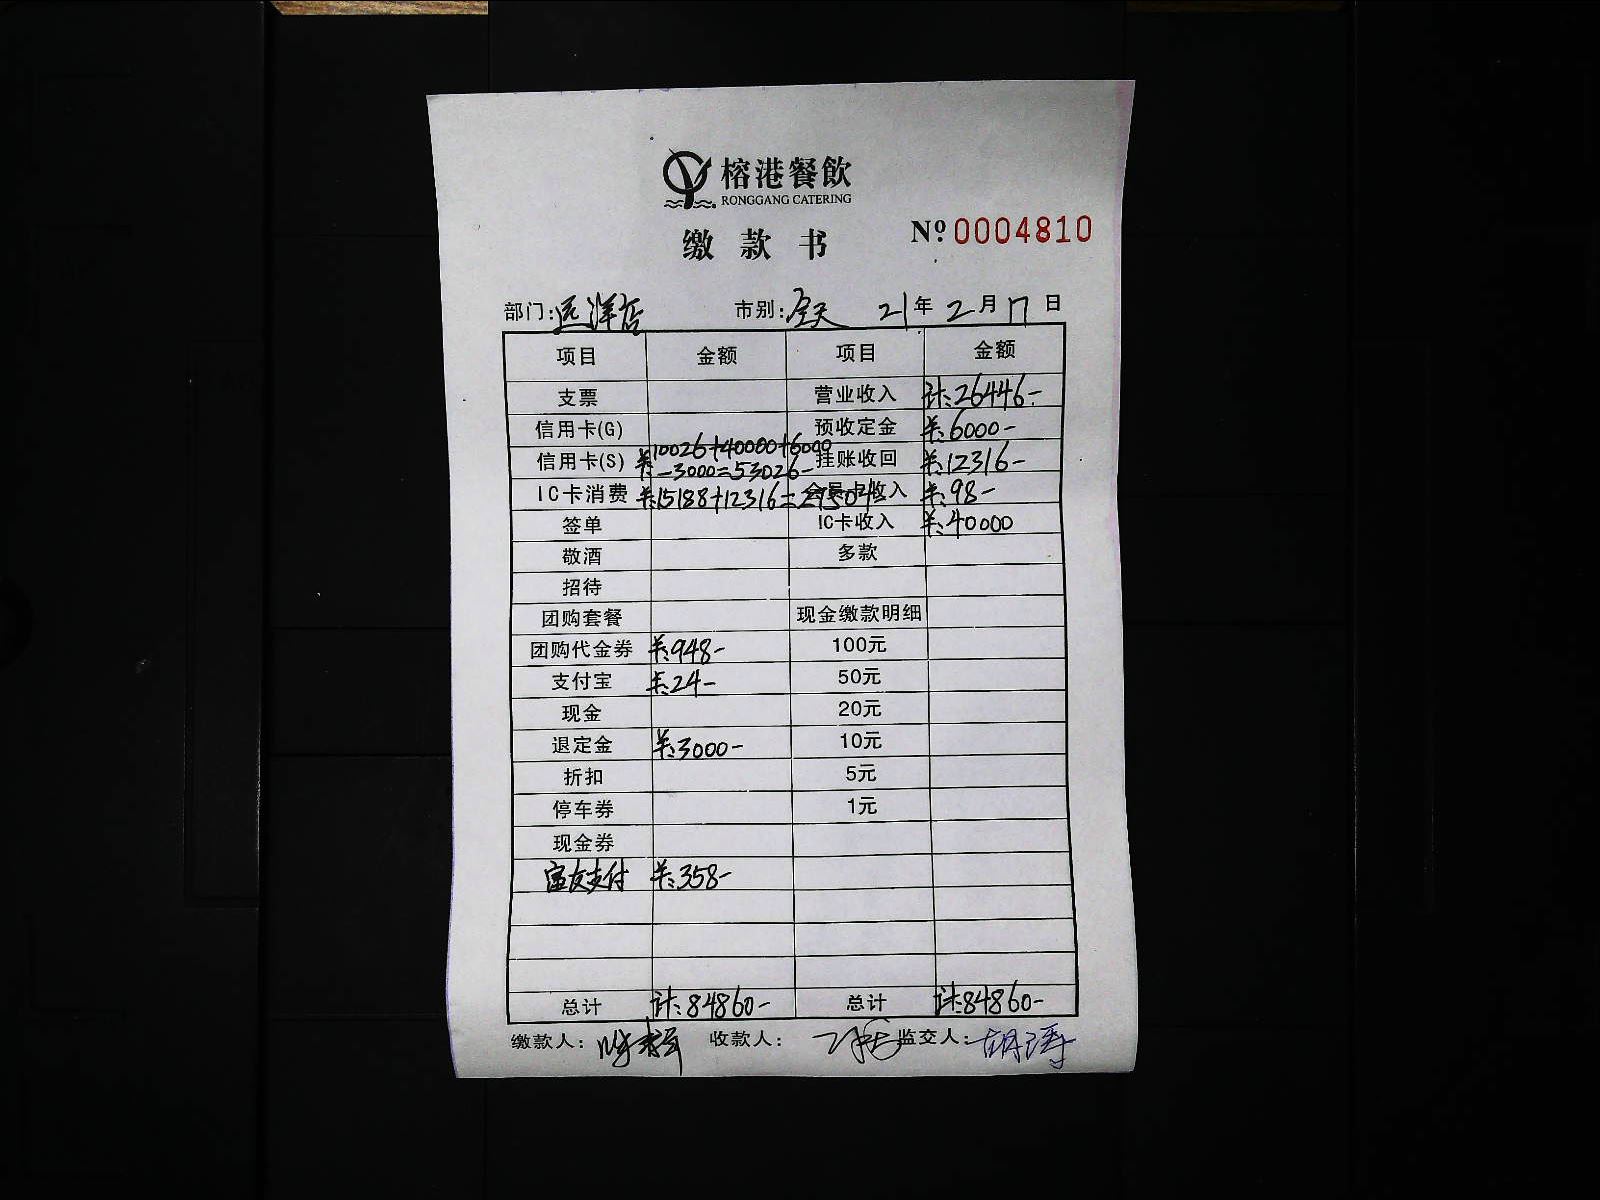 榕港餐飲
RONGGANG CATERING
缴款书
Nº 0004810
部门: 远洋店 市别: 全天 21年2月17日
项目 金额 项目 金额
支票 营业收入 计:26446-
信用卡(G) 预收定金 ¥:6000-
信用卡(S) ¥:10026+40000+6000-3000=53026- 挂账收回 ¥:12316-
IC卡消费 ¥:15188+12316=27504- 会员卡收入 ¥:98-
签单 IC卡收入 ¥:40000
敬酒 多款
招待
团购套餐 现金缴款明细
团购代金券 ¥:948- 100元
支付宝 ¥:24- 50元
现金 20元
退定金 ¥:3000- 10元
折扣 5元
停车券 1元
现金券
富友支付 ¥:358-
总计 计:84860- 总计 计:84860-
缴款人: 收款人: 监交人: